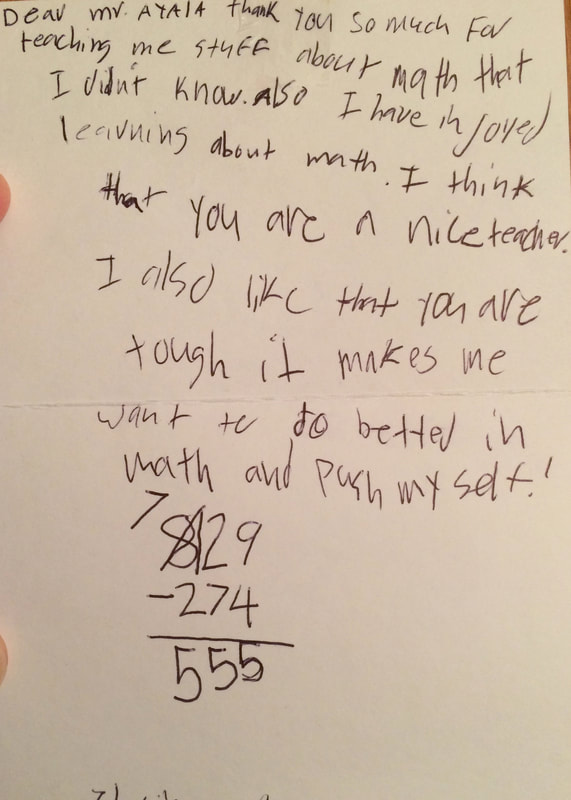 Dear mr. AYALA thank you so much For
teaching me stuff about math that
I didn't know. Also I have injoyed
learning about math. I think
that you are a nice teacher.
I also like that you are
tough it makes me
want to do better in
math and push my self.!
7
8129
-274
555